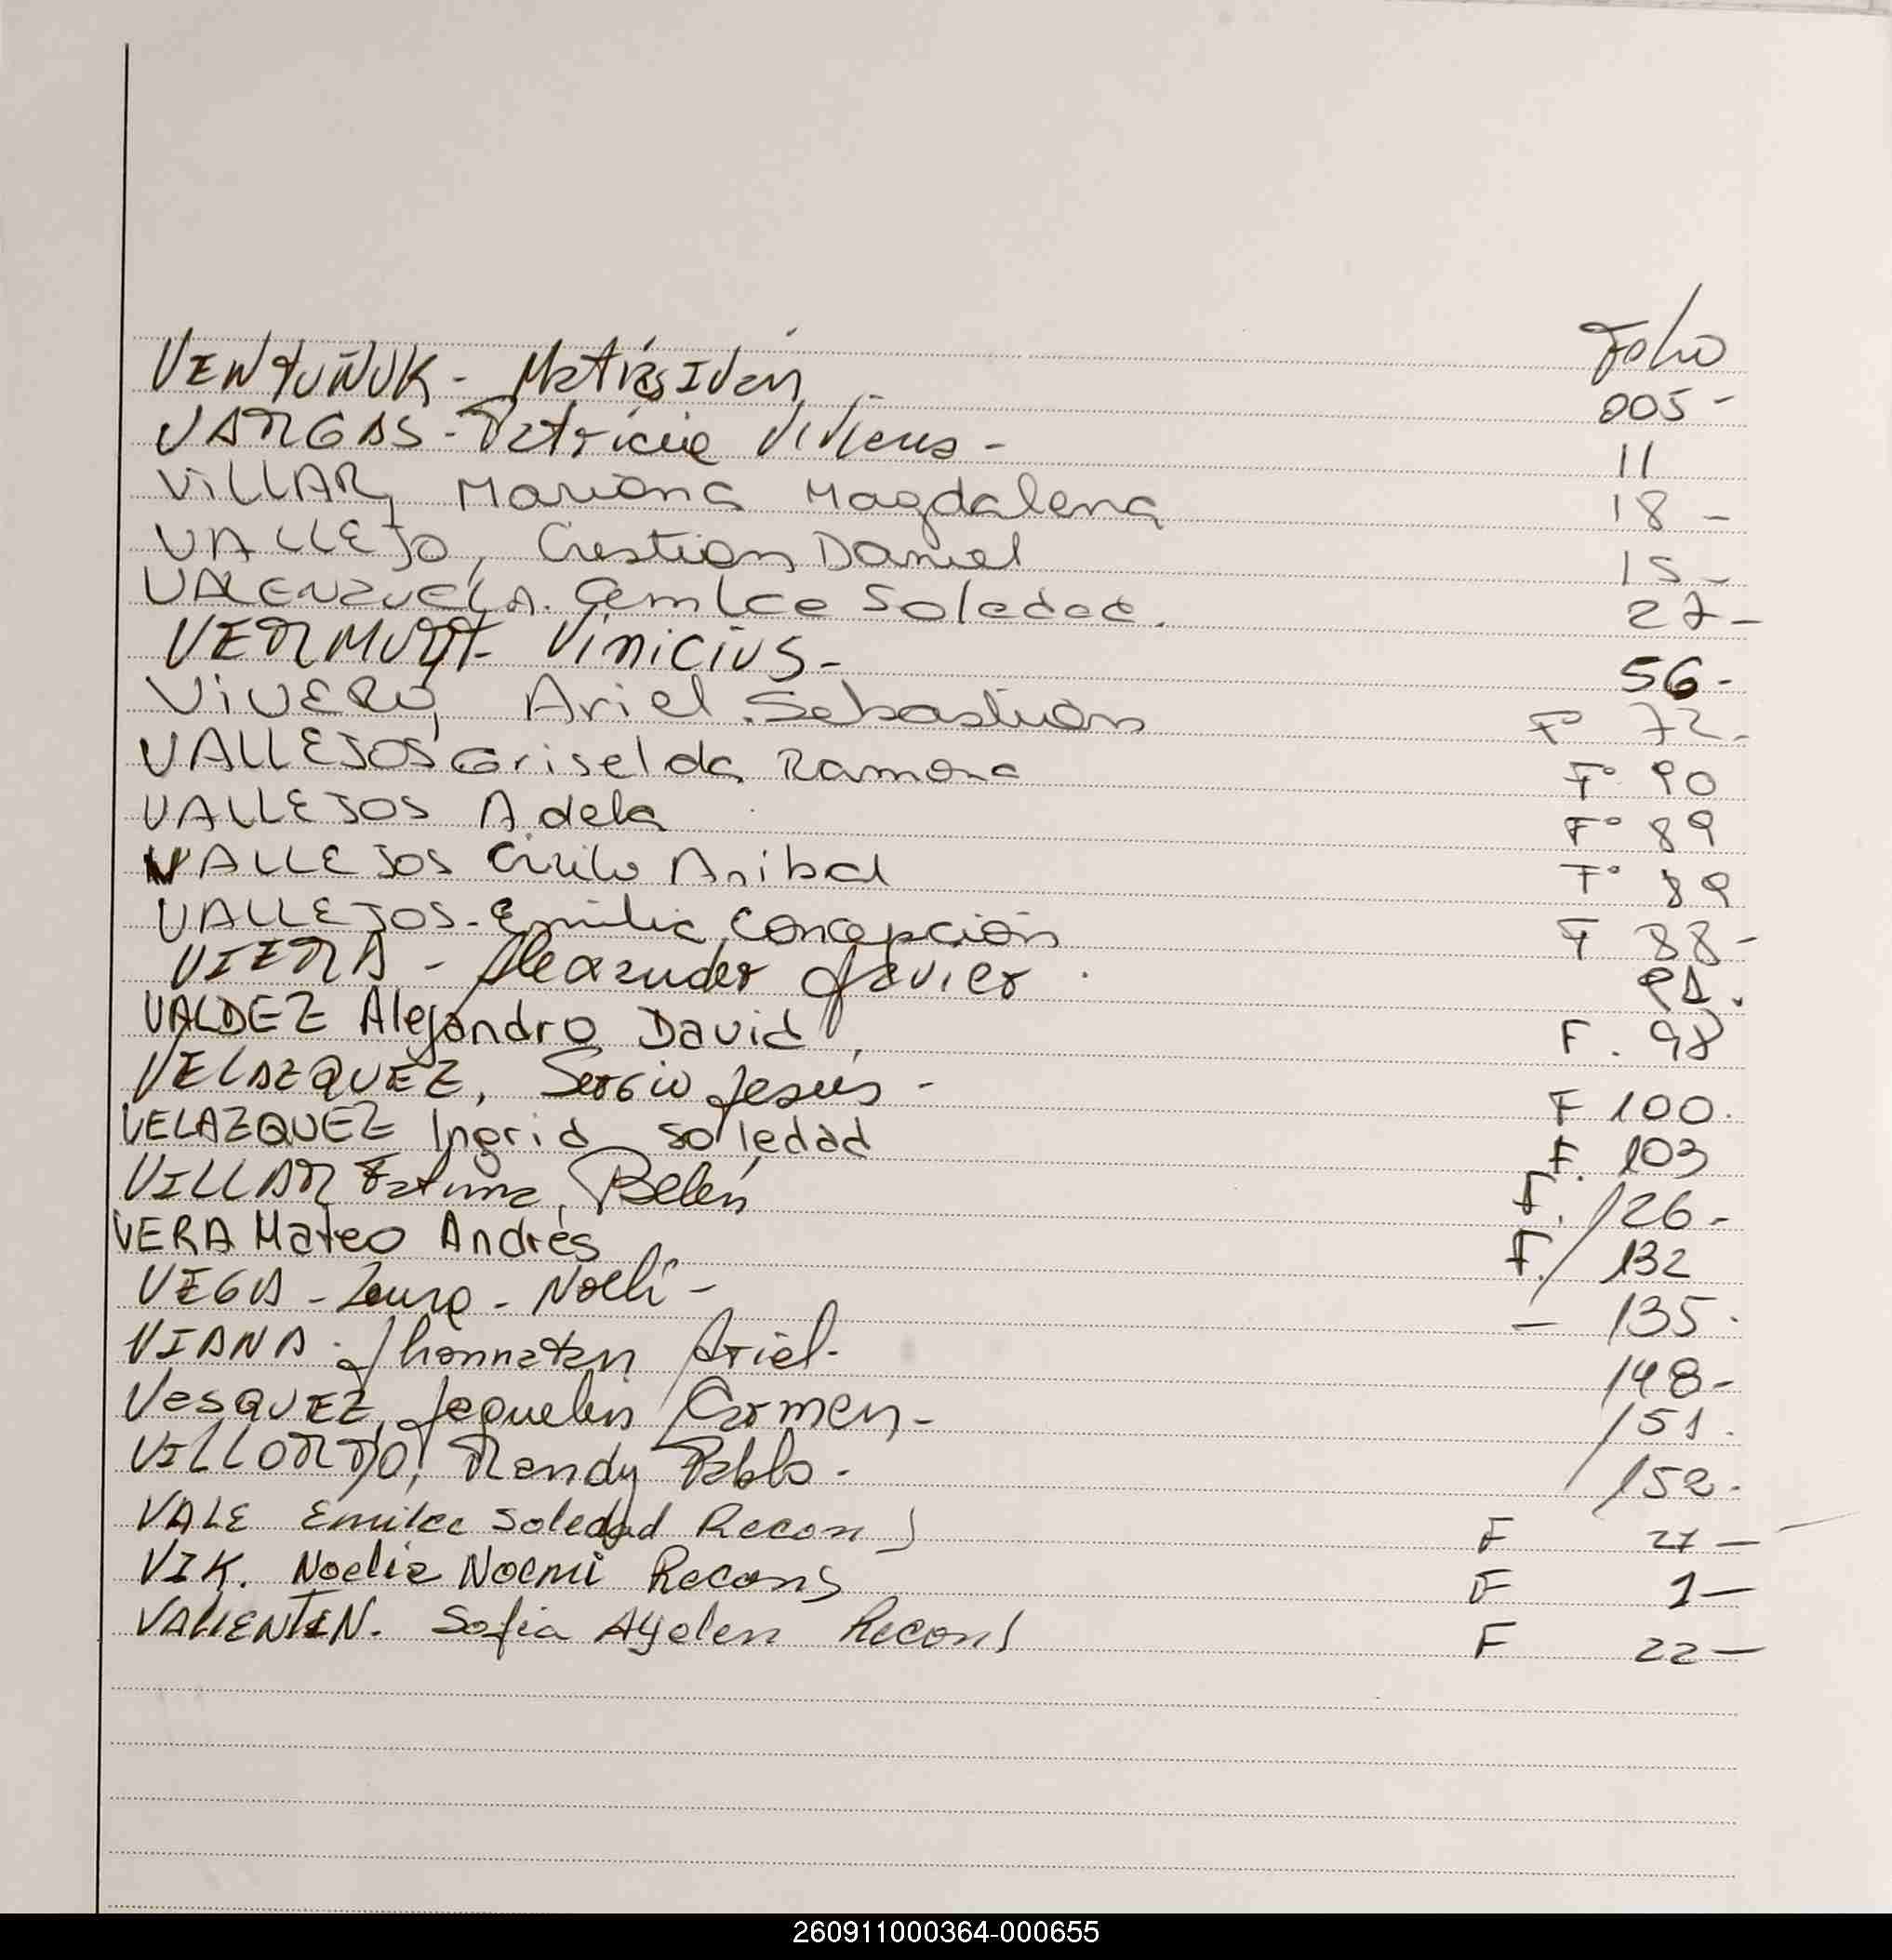 Folio
VENTUÑUK - Matías Iván 005 -
VARGAS - Patricia Viviana - 11
VILLAR, Mariana Magdalena 18 -
VALLEJO, Cristian Daniel 15 -
VALENZUELA. Emilce Soledad. 27 -
VERMUTT Vinicius - 56 -
VIVERO, Ariel Sebastián F° 72 -
VALLEJOS Griselda Ramona F° 90
VALLEJOS Adela F° 89
VALLEJOS Cirilo Anibal F° 89
VALLEJOS - Emilia Concepción F 88 -
VIERA - Alexander Javier . 91 .
VALDEZ Alejandro David F. 98
VELAZQUEZ, Sergio Jesús - F 100.
VELAZQUEZ Ingrid Soledad F. 103
VILLAR Fatima Belén F. 126 -
VERA Mateo Andrés F. 132
VEGA - Laura - Noelí - - 135 .
VIANA - Jhonnatan Ariel - 148 -
VESQUEZ, Jaquelin Carmen - 151 .
VILLORDO, Randy Pablo - 152 -
VALE Emilce Soledad Recon F 27 -
VIK. Noelia Noemi Recons F 1 -
VALIENTEN. Sofia Ayelen Recons F 22 -
260911000364-000655